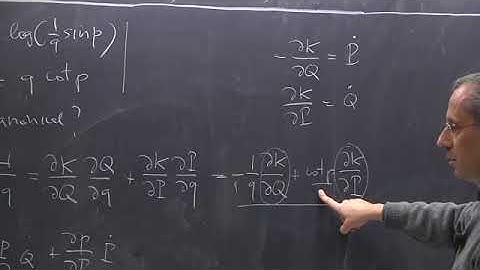 log(1/q sin p)
= q cot p
anonical?
-∂K/∂Q = Ṗ
∂K/∂P = Q̇
1/q = ∂K/∂Q ∂Q/∂q + ∂K/∂P ∂P/∂q = -1/q ∂K/∂Q + cot p ∂K/∂P
Q̇ + ∂p/∂P Ṗ